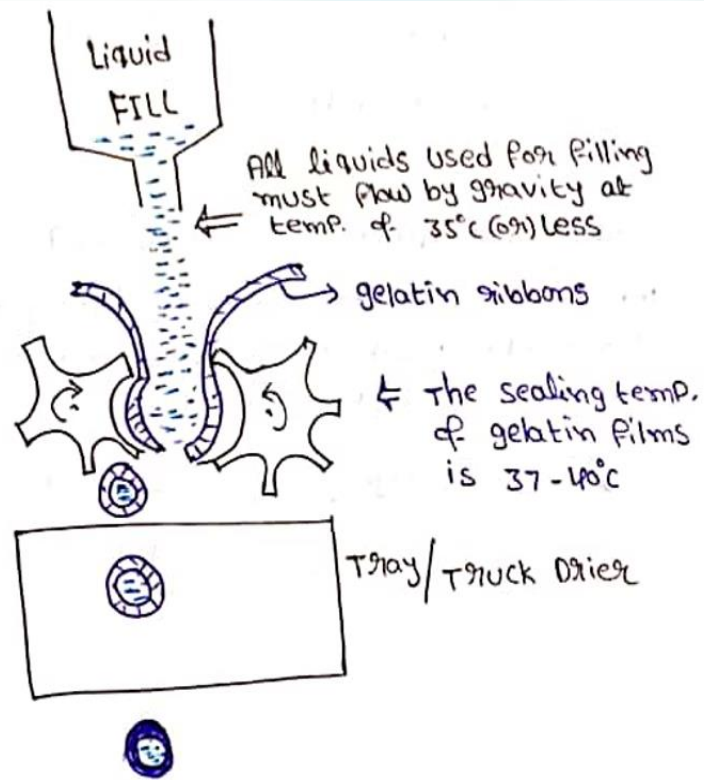 Liquid
FILL
All liquids used for filling
must flow by gravity at
temp. of 35°C (or) Less
gelatin ribbons
The sealing temp.
of gelatin films
is 37-40°C
Tray/Truck Drier